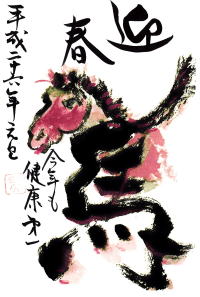 迎春
平成二十六年元旦
今年も
健康第一
馬